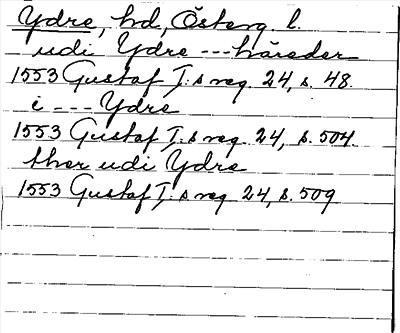 Ydre, hd, Österg. l.
udi Ydre --- härader
1553 Gustaf I:s reg. 24, s. 48.
i --- Ydre
1553 Gustaf I:s reg. 24, s. 504.
ther udi Ydre
1553 Gustaf I:s reg. 24, s. 509